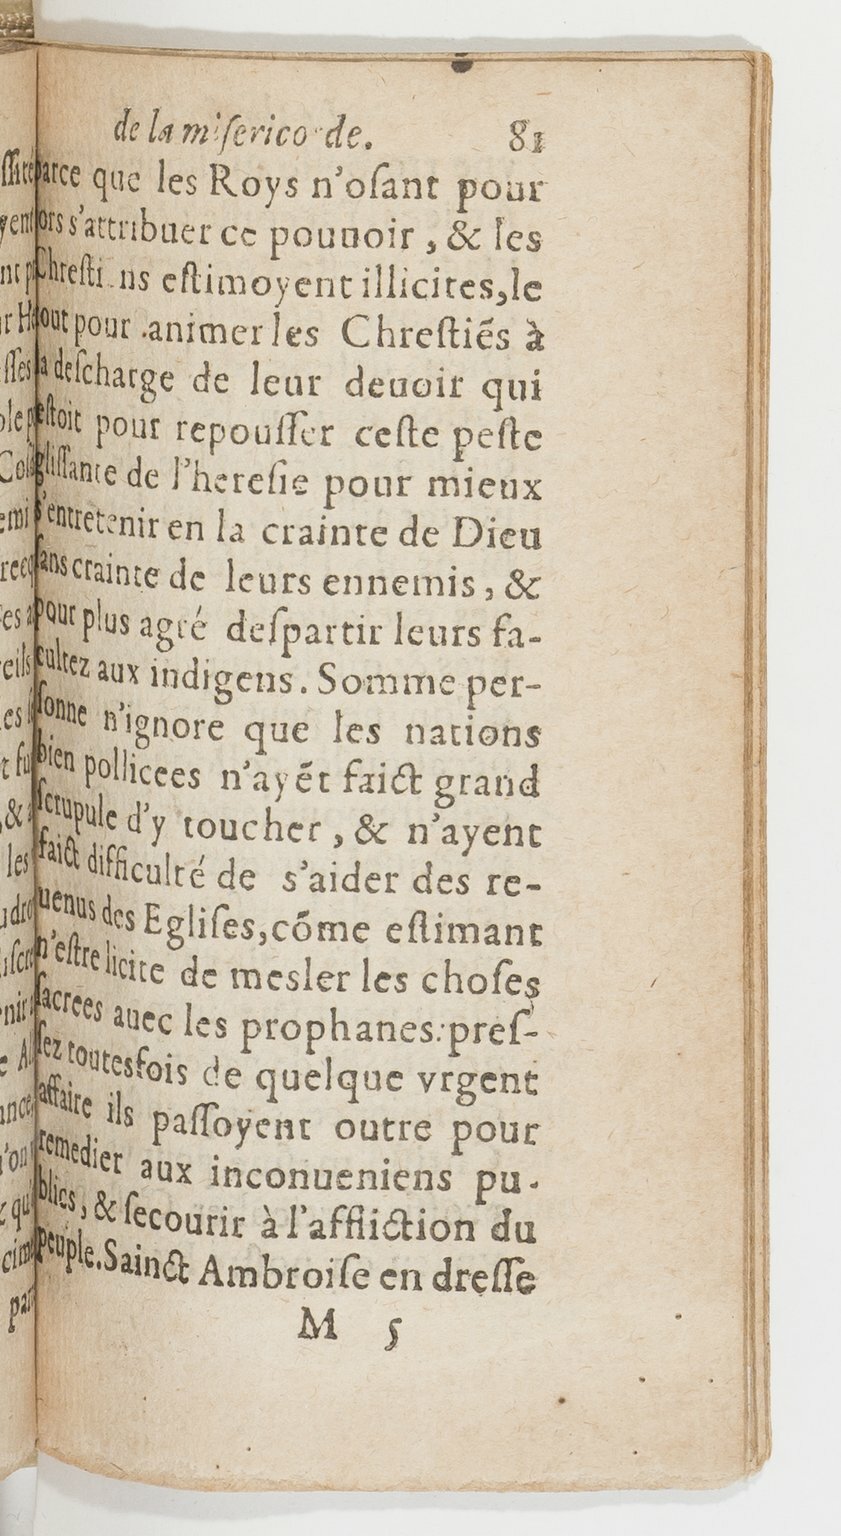 de la misericorde. 81
parce que les Roys n'oſant pour
lors s'attribuer ce pouuoir, & les
Chreſtiens eſtimoyent illicites, le
tout pour animer les Chreſtiẽs à
la deſcharge de leur deuoir qui
eſtoit pour repouſſer ceſte peſte
gliſſante de l'hereſie pour mieux
s'entretenir en la crainte de Dieu
ſans crainte de leurs ennemis, &
pour plus agré deſpartir leurs fa-
cultez aux indigens. Somme per-
ſonne n'ignore que les nations
bien pollicees n'ayẽt faict grand
ſcrupule d'y toucher, & n'ayent
faict difficulté de s'aider des re-
uenus des Egliſes, cõme eſtimant
n'eſtre licite de mesler les choſes
ſacrees auec les prophanes: preſ-
ſez toutesfois de quelque vrgent
affaire ils paſſoyent outre pour
remedier aux inconueniens pu-
blics, & ſecourir à l'affliction du
peuple. Sainct Ambroiſe en dreſſe
M 5